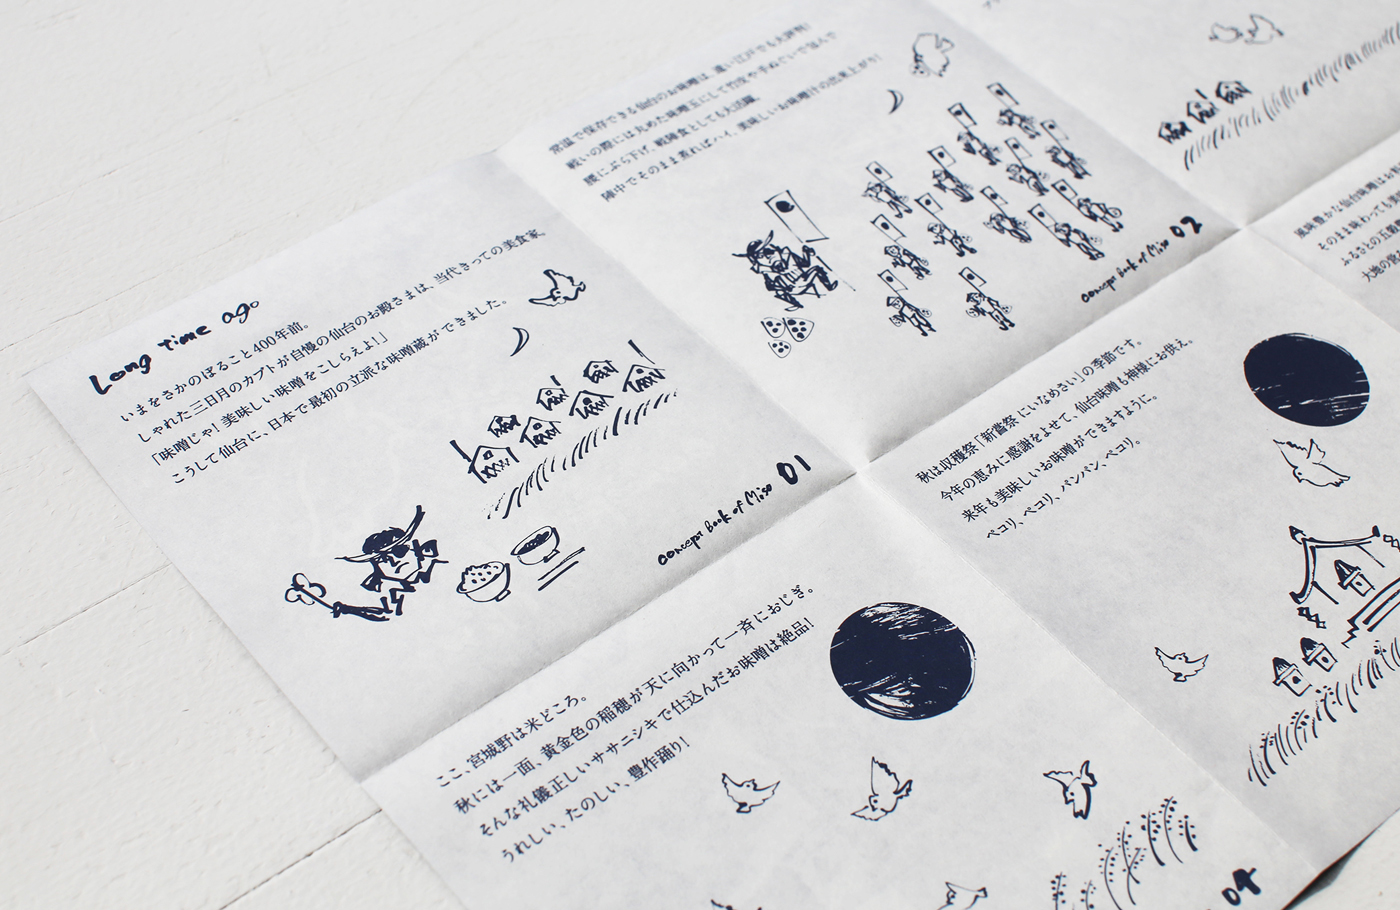 Long time ago
いまをさかのぼること400年前。
しゃれた三日月のカブトが自慢の仙台のお殿さまは、当代きっての美食家。
「味噌じゃ！美味しい味噌をこしらえよ！」
こうして仙台に、日本で最初の立派な味噌蔵ができました。
concept book of Miso 01
常温で保存できる仙台のお味噌は、遠い江戸でも大評判！
戦いの際には丸めた味噌玉にして竹皮や手ぬぐいで包んで
腰にぶら下げ、戦陣食としても大活躍。
陣中でそのまま煮ればハイ、美味しいお味噌汁の出来上がり！
concept book of Miso 02
風味豊かな仙台味噌はお
そのまま味わっても
ふるさとの五
大地の
ここ、宮城野は米どころ。
秋には一面、黄金色の稲穂が天に向かって一斉におじぎ。
そんな礼儀正しいササニシキで仕込んだお味噌は絶品！
うれしい、たのしい、豊作踊り！
04
秋は収穫祭「新嘗祭 にいなめさい」の季節です。
今年の恵みに感謝をよせて、仙台味噌も神様にお供え。
来年も美味しいお味噌ができますように。
ペコリ、ペコリ、パンパン、ペコリ。